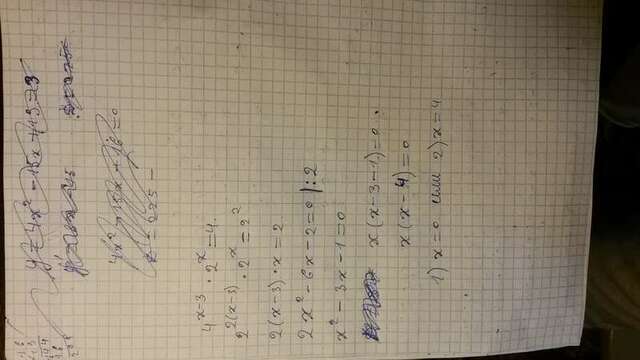 y = 4x² - 15x + 19 = 3
4x² - 15x + 16 = 0
4^(x-3) · 2^x = 4
2^(2(x-3)) · 2^x = 2²
2(x-3) · x = 2
2x² - 6x - 2 = 0 | : 2
x² - 3x - 1 = 0
x(x-3-1) = 0
x(x-4) = 0
1) x = 0 или 2) x = 4